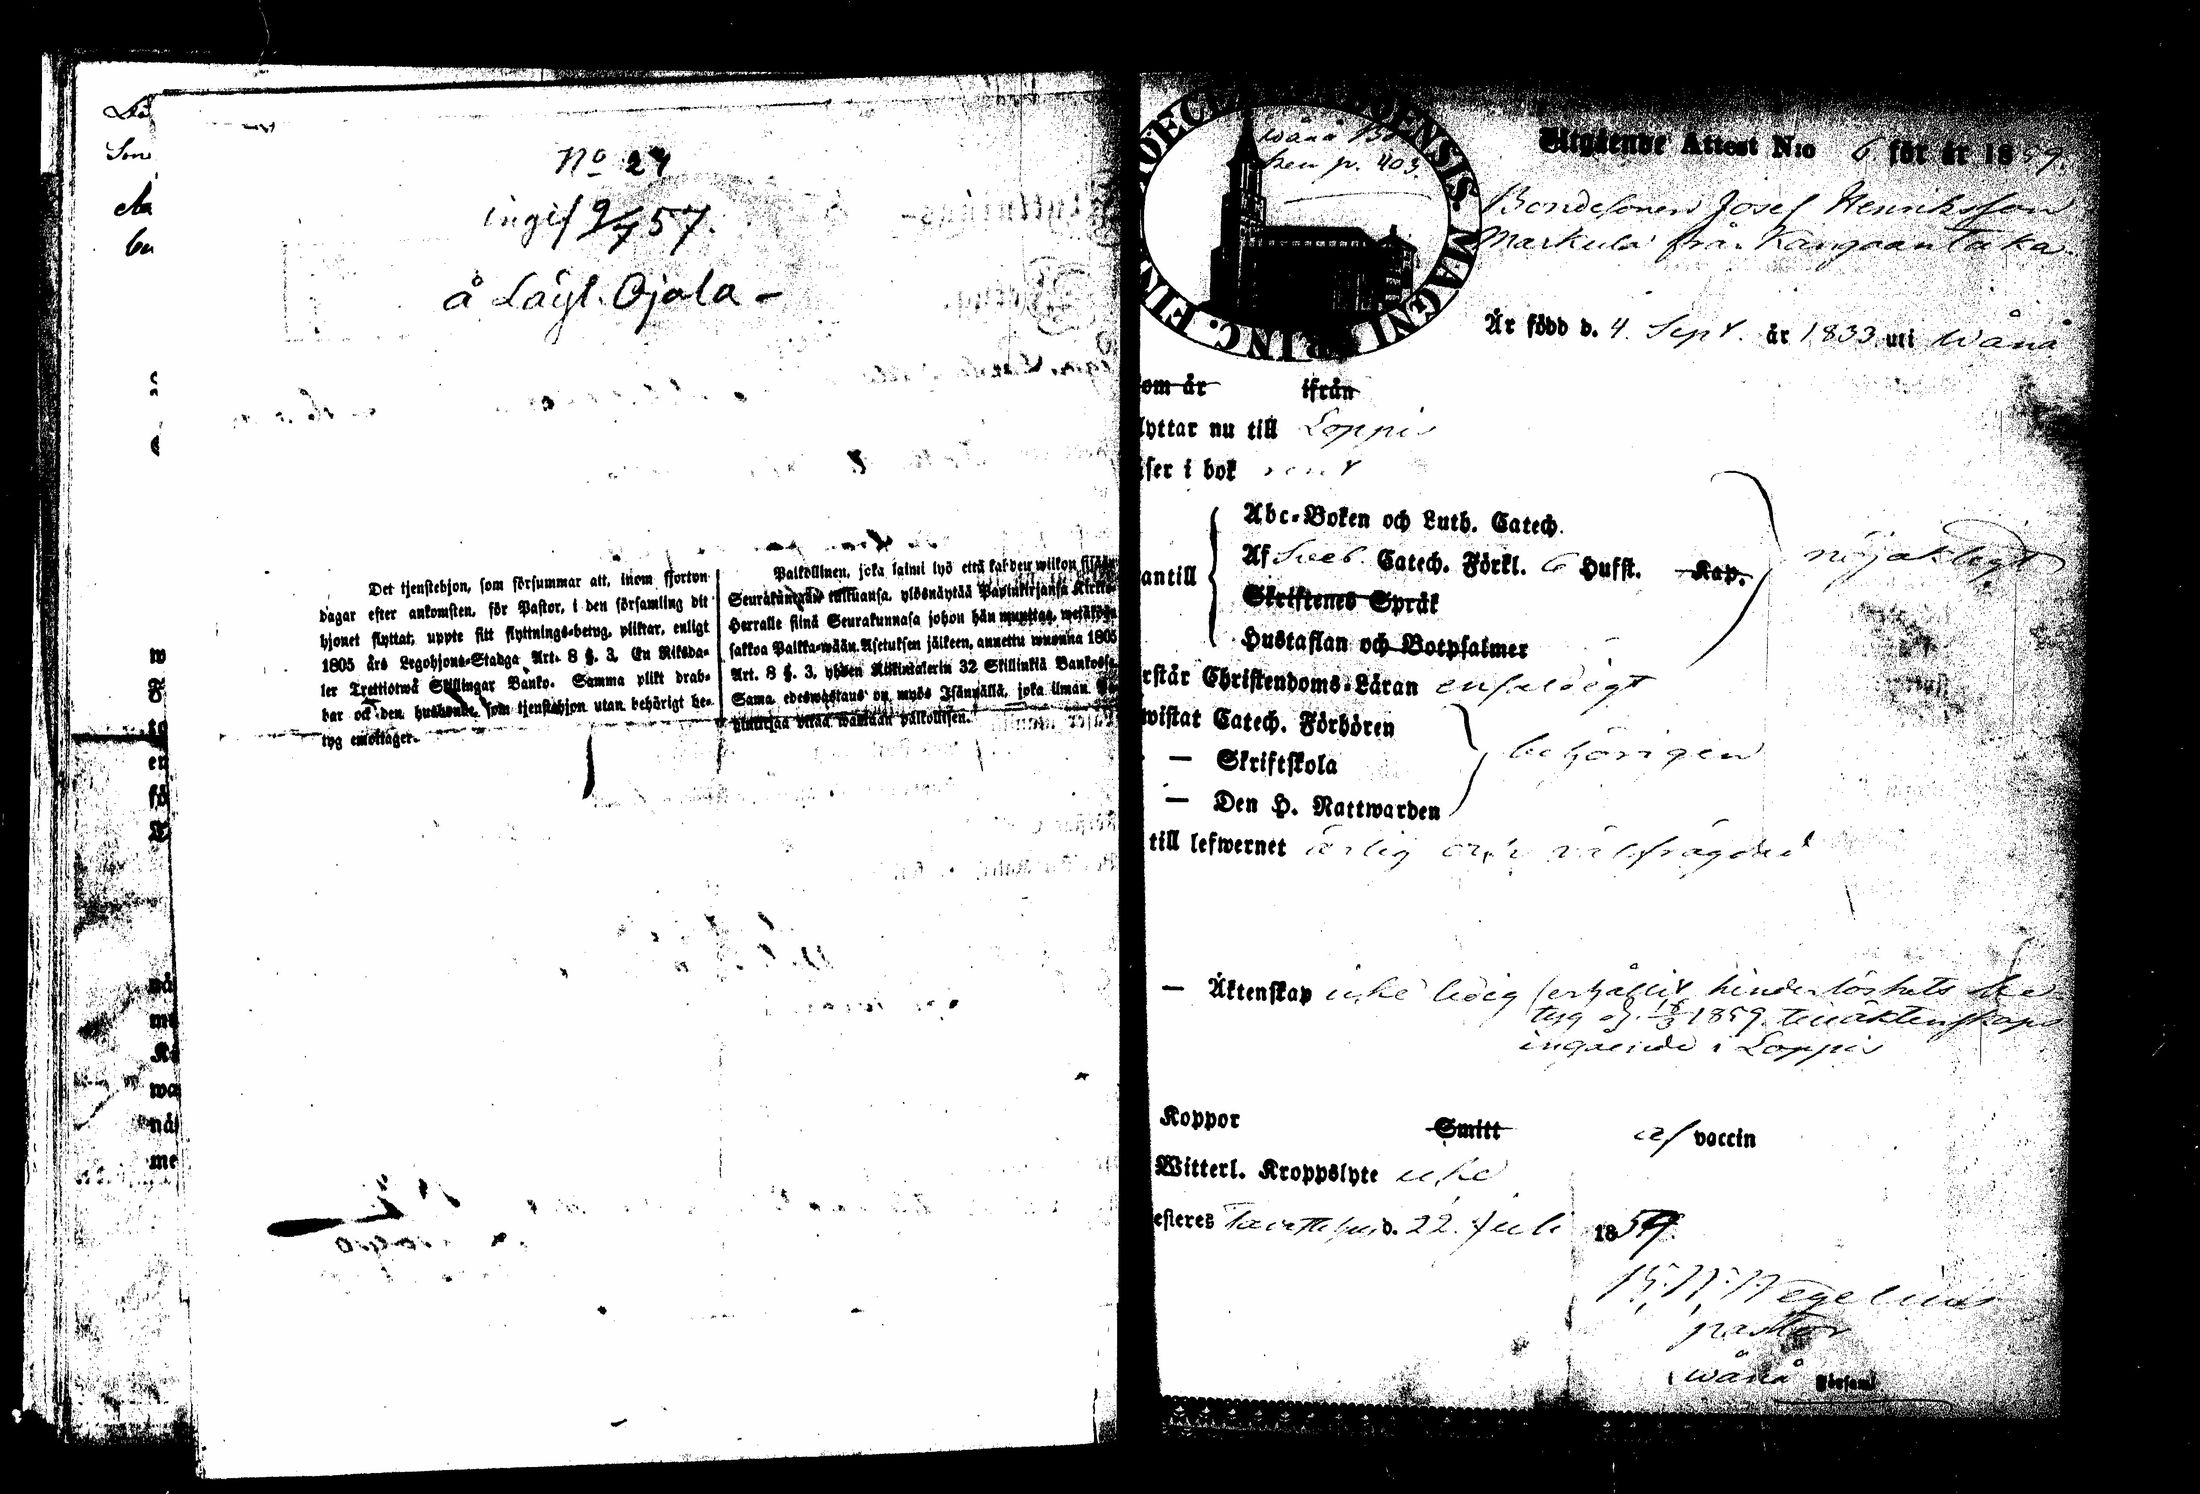 No 27
ingif 9/7 57.
å Läyl. Ojala -
Det tjenstehjon, som försummar att, inom fjorton
dagar efter ankomsten, för Pastor, i den församling dit
hjonet flyttat, uppte sitt flyttnings-betyg, pliktar, enligt
1805 års Legohjons-Stadga Art. 8 §. 3. En Riksda-
ler Trettiotwå Skillingar Banko. Samma plikt drab-
bar ock den husbonde, som tjenstehjon utan behörigt be-
tyg emottager.
Palkollinen, joka laimi lyö että kahden wiikon sisään
Seurakuntaan tultuansa, ylösnäytää Papinkirjansa Kirko-
Herralle siinä Seurakunnasa johon hän muuttaa, wetäköön
sakkoa Palkka-wäen Asetuksen jälkeen, annettu wuonna 1805
Art. 8 §. 3, yhden Riikintalerin 32 Skillinkiä Bankossa
Sama edeswastaus on myös Isännällä, joka ilman
pitää wastaan palkollisen.
Wånå
sen p. 403.
Utgående Attest N:o 6 för år 1859.
Bondesonen Josef Henriksson
Markula från Kangaantaka.
Är född d. 4 Sept. år 1833 uti Wånå
om år ifrån
lyttar nu till Loppis
iser i bok rent
Abc-Boken och Luth. Catech.
antill Af Sveb. Catech. Förkl. 6 Hufst. Kap. nöjaktigt
Skriftenes Språk
Hustaflan och Botpsalmer
rstår Christendoms-Läran enfaldigt
wistat Catech. Förhören
— Skriftskola behörigen
— Den H. Nattwarden
till lefwernet ärlig och välfrägdad
— Äktenskap icke ledig (erhållit hinderlöshets be-
tyg af 18/3 1859 till äktenskaps
ingående i Loppis
Koppor Smitt af vaccin
Witterl. Kroppslyte icke
esteres Tavastehus d. 22. Juli 1859.
Hegelius
pastor
i Wånå Församl.